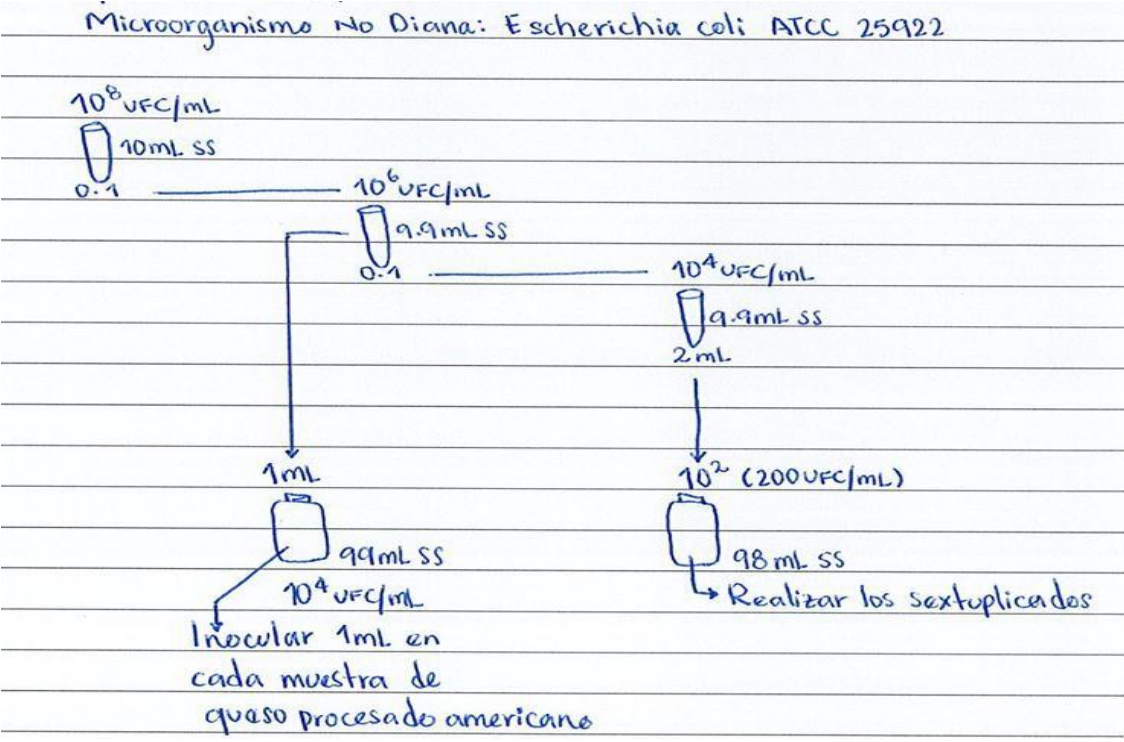 Microorganismo No Diana: Escherichia coli ATCC 25922
10⁸ UFC/mL
10mL SS
0.1
10⁶ UFC/mL
9.9mL SS
0.1
10⁴ UFC/mL
9.9mL SS
2mL
1mL
99mL SS
10⁴ UFC/mL
Inocular 1mL en
cada muestra de
queso procesado americano
10² (200UFC/mL)
98 mL SS
Realizar los sextuplicados